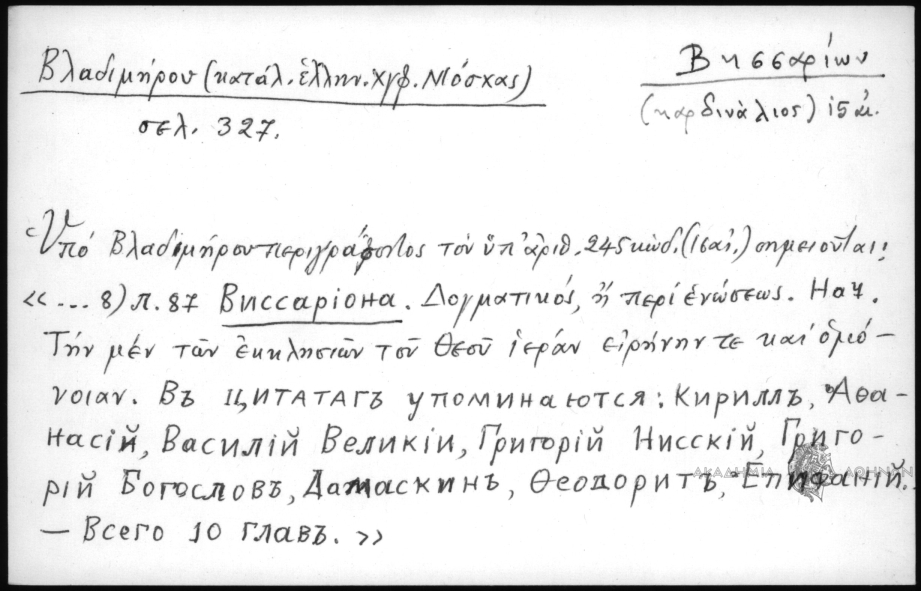 Βλαδιμήρου (κατάλ. ἑλλην. χγφ. Μόσχας)
σελ. 327.
Βησσαρίων
(καρδινάλιος) 15 αἰ.
Ὑπό Βλαδιμήρου περιγράφοντος τόν ὑπ' ἀριθ. 245 κώδ. (16 αἰ.) σημειοῦται:
«... 8) л. 87 Виссаріона. Δογματικός, ἤ περί ἑνώσεως. Нач.
Τήν μέν τῶν ἐκκλησιῶν τοῦ Θεοῦ ἱεράν εἰρήνην τε καί ὁμό-
νοιαν. Въ цитатагъ упоминаются: Кириллъ, Аѳа-
насій, Василій Великіи, Григорій Нисскій, Григо-
рій Богословъ, Дамаскинъ, Ѳеодоритъ, Епифаній.
— Всего 10 главъ. »
ΑΚΑΔΗΜΙΑ ΑΘΗΝΩΝ